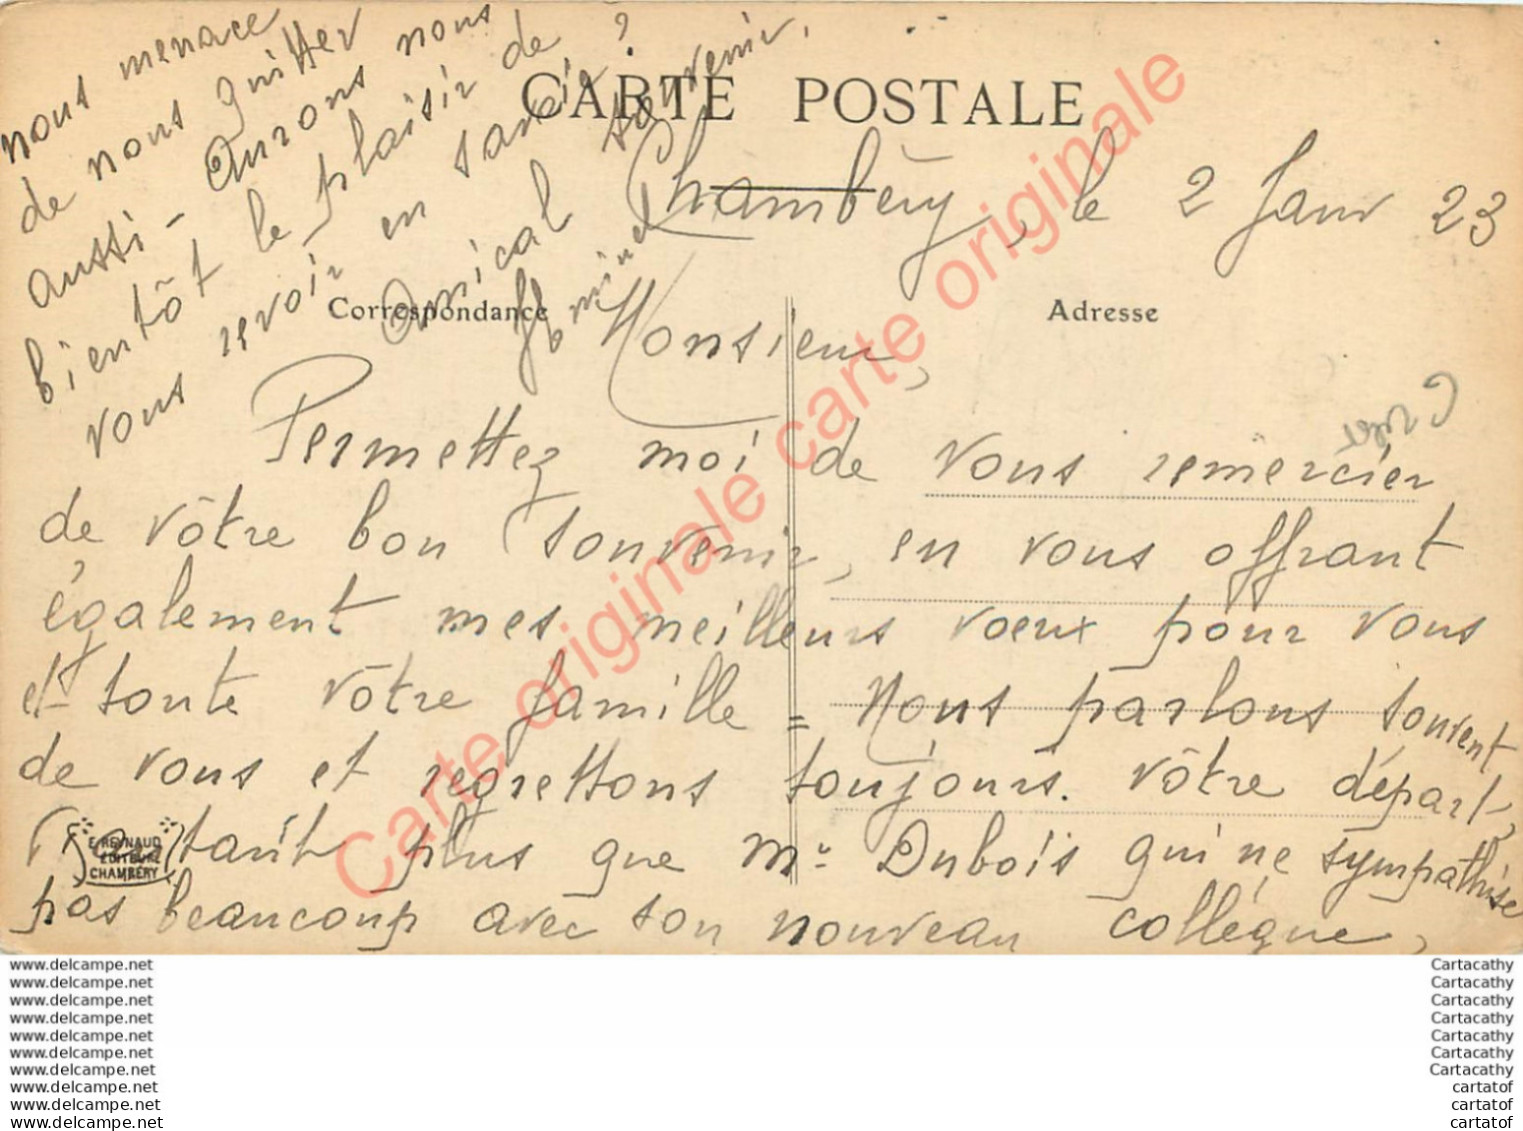 CARTE POSTALE
Chambéry, le 2 Janv 23
Correspondance
Adresse
Monsieur,
Permettez moi de vous remercier
de vôtre bon souvenir, en vous offrant
également mes meilleurs voeux pour vous
et toute vôtre famille = Nous parlons souvent
de vous et regrettons toujours vôtre départ,
d'autant plus que Mr Dubois qui ne sympathise
pas beaucoup avec son nouveau collègue,
nous menace
de nous quitter
aussi - Aurons nous
bientôt le plaisir de
vous revoir en Savoie ?
Amical souvenir,
E. REYNAUD
ÉDITEUR
CHAMBÉRY
Carte originale carte originale
www.delcampe.net
www.delcampe.net
www.delcampe.net
www.delcampe.net
www.delcampe.net
www.delcampe.net
www.delcampe.net
www.delcampe.net
www.delcampe.net
www.delcampe.net
Cartacathy
Cartacathy
Cartacathy
Cartacathy
Cartacathy
Cartacathy
Cartacathy
cartatof
cartatof
cartatof